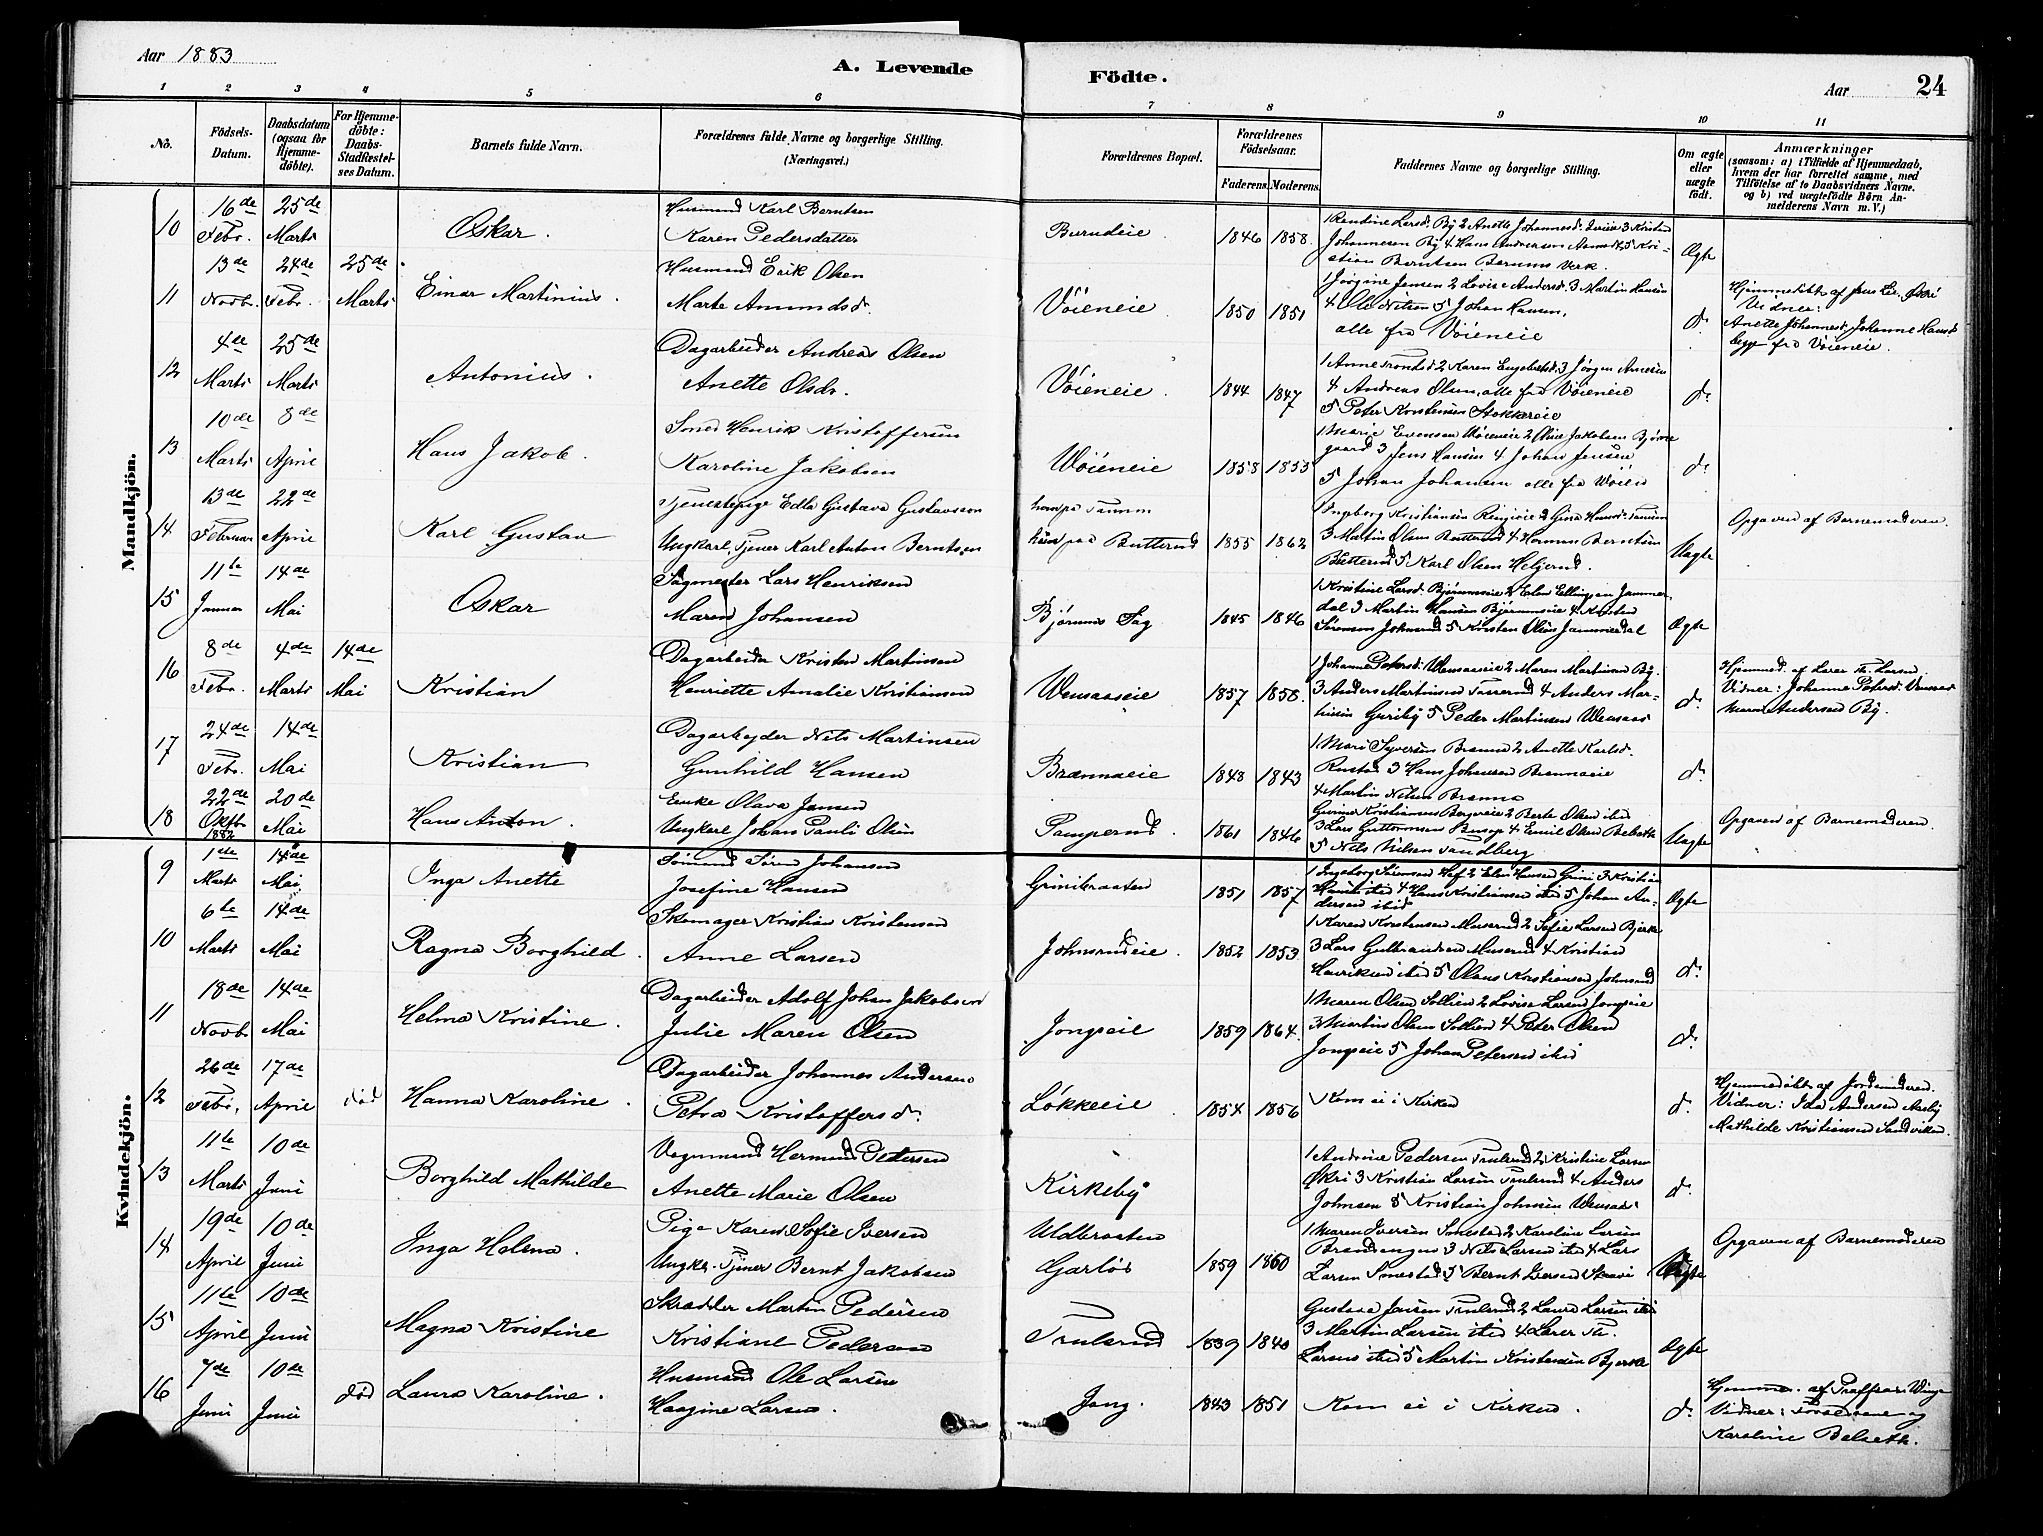 Aar 1883
A. Levende
Födte.
Aar
24
1 2 3 4 5 6 7 8 9 10 11
No.
Födsels-Datum.
Daabsdatum (ogsaa for Hjemme-döbte).
For Hjemme-döbte: Daabs-Stadfæstel-ses Datum.
Barnets fulde Navn.
Forældrenes fulde Navne og borgerlige Stilling. (Næringsvei.)
Forældrenes Bopæl.
Forældrenes Födselsaar.
Faderens. Moderens.
Faddernes Navne og borgerlige Stilling.
Om ægte eller uægte födt.
Anmærkninger
(saasom: a) i Tilfælde af Hjemmedaab, hvem der har forrettet samme, med Tilföielse af to Daabsvidners Navne. og b) ved uægtefödte Börn An-melderens Navn m. V.)
Mandkjön.
10 16de Febr. 25de Marts Oskar.
Husmand Karl Berntsen
Karen Pedersdatter
Burudeie 1846 1858.
Johannesen By 4 Hans Andersen
stian Berntsen Bærums Verk.
Ægte
11 13de Novbr. 24de Febr. 25de Marts Einar Martinius.
Husmand Erik Olsen
Marte Amundsd.
Vöieneie 1850 1851
1 Jörgine Jensen 2 Lovise Andersd. 3 Martin Hansen
4 Ole Nilsen 5 Johan Hansen,
alle fra Vöieneie
d.
Vidner:
Anette Johannesd. Johanne Hansd.
begge fra Vöieneie.
12 4de Marts 25de Marts Antonius.
Dagarbeider Andreas Olsen
Anette Olsdr.
Vöieneie. 1844 1847
1 Anne Trondsd. 2 Karen Engebretsd. 3 Jörgen
4 Andreas Olsen, alle fra Vöieneie
5 Peter Kristensen Stokkereie
d.
13 10de Marts 8de April Hans Jakob.
Smed Henrik Kristoffersen
Karoline Jakobsen
Wöieneie 1858 1853
1 Marie Evensen Wöieneie 2 Jakobsen Bjørne
gaard 3 Jens Hansen 4 Johan Jensen
5 Johan Johansen alle fra Wöien
d.
14 13de Februar 22de April Karl Gustav
Tjenestepige Edla Gustava Gustavsson
Ungkarl, Tjener Karl Anton Berntsen
hun paa Tanum
han paa Butterud 1855 1862
1 Ingeborg Kristiansen
3 Martin Olsen Butterud 4 Herman Berntsen
Butterud 5 Karl Olsen Helgerud.
Uægte
Opgaven af Barnemoderen.
15 11te Januar 14de Mai Oskar
Sagmester Lars Henriksen
Maren Johansen
Bjørums Sag 1845 1846
1 Kristine Larsd. Bjørumseie 2 Ellingsen Jammer
dal 3 Martin Hansen Bjørumseie 4 Kristen
Sørensen Johnsrud 5 Kristen Olsen Jammerdal
Ægte
16 8de Febr. 4de Marts 14de Mai Kristian
Dagarbeider Kristen Martinsen
Henriette Amalie Kristiansen
Wensaaseie 1857 1858.
1 Johanne Petersd. Wensaaseie 2 Maren Martinsen By.
3 Anders Martinsen Tusserud 4 Anders Mar-
tinsen Guriby 5 Peder Martinsen Wensaas
d.
Hjemmed. af Lærer Th. Larsen
Vidner: Johanne Petersd. Vensaas
Maren Andersen By.
17 24de Febr. 14de Mai Kristian
Dagarbeyder Nils Martinsen
Gunhild Hansen
Brennaeie 1848 1843
1 Mari Syversen Brenna 2 Anette Karlsd.
Rustad 3 Hans Johnsen Brennaeie
4 Martin Nilsen Brenna
d.
18 22de Oktbr. 1882 20de Mai Hans Anton.
Enke Olava Jensen
Ungkarl Johan Pauli Olsen
Tamperud. 1861 1846
Kristiansen Borgereie 2 Berte Olsen ibid
3 Lars Guttormsen 4 Emil Olsen Belseth
5 Nils Nilsen Sandberg
Uægte
Opgaven af Barnemoderen.
Kvindekjön.
9 1ste Marts 14de Mai Inga Anette
Sören Johansen
Josefine Hansen
Grinibraaten 1851 1857
1 Ingeborg 2 Hansen Grini 3 Kristian
ibid 4 Hans Kristiansen ibid 5 Johan An-
dersen ibid
Ægte
10 6te Marts 14de Mai Ragna Borghild.
Skomager Kristian Kristensen
Anne Larsen
Johnsrudeie. 1852 1853
1 Karen Kristensen Muserud 2 Sofie Larsen Bjerke
3 Lars Gulbrandsen Muserud 4 Kristian
Henriksen ibid 5 Olaus Kristiansen Johnsrud
d.
11 18de Novbr 14de Mai Helma Kristine.
Dagarbeider Adolf Johan Jakobsen
Julie Maren Olsen
Jongseie 1859 1864.
1 Maren Olsen Sollien 2 Lovise Larsen Jongseie
3 Martin Olsen Sollien 4 Peter Olsen
Jongseie 5 Johan Petersen ibid
d.
12 26de Febr. 17de April död Hanna Karoline.
Dagarbeider Johannes Andersen
Petra Kristoffersd.
Løkkeeie 1854 1856
Kom ei i Kirken
d.
Hjemmedöbt af Jordemoderen.
Vidner: Ida Andersen Aasby
Mathilde Kristiansen Sandviken.
13 11te Marts 10de Juni Borghild Mathilde
Herman Petersen
Anette Marie Olsen
Kirkeby
1 Andreie Pedersen Trulsrud 2 Kristine Larsen
Økri 3 Kristian Larsen Trulsrud 4 Anders
Johnsen 5 Kristian Johnsen Wensaas
d.
14 19de April 10de Juni Inga Helena.
Pige Karen Sofie Iversen
Ungk. Tjener Bernt Jakobsen
Garlös 1859 1860
1 Maren Iversen 2 Karoline Larsen
Brendengen 3 Nils Larsen ibid 4 Lars
Larsen 5 Bernt Iversen
Uægte
Opgaven af Barnemoderen
15 11te April 10de Juni Magna Kristine
Skrædder Martin Pedersen
Kristiane Pedersen
Trulsrud 1839 1840
Gustava Jansen Trulsrud 2 Laura Larsen ibid
3 Martin Larsen ibid 4 Lærer Th.
Larsen ibid 5 Martin Kristensen Bjerke
Ægte
16 7de Juni 10de Juni död Laura Karoline.
Husmand Ole Larsen
Haagine Larsen.
Jong. 1843 1851
Kom ei i Kirken.
d.
Vidner: og
Karoline Belseth.